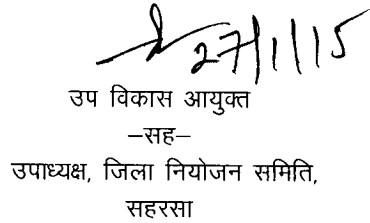 27/1/15
उप विकास आयुक्त
–सह–
उपाध्यक्ष, जिला नियोजन समिति,
सहरसा